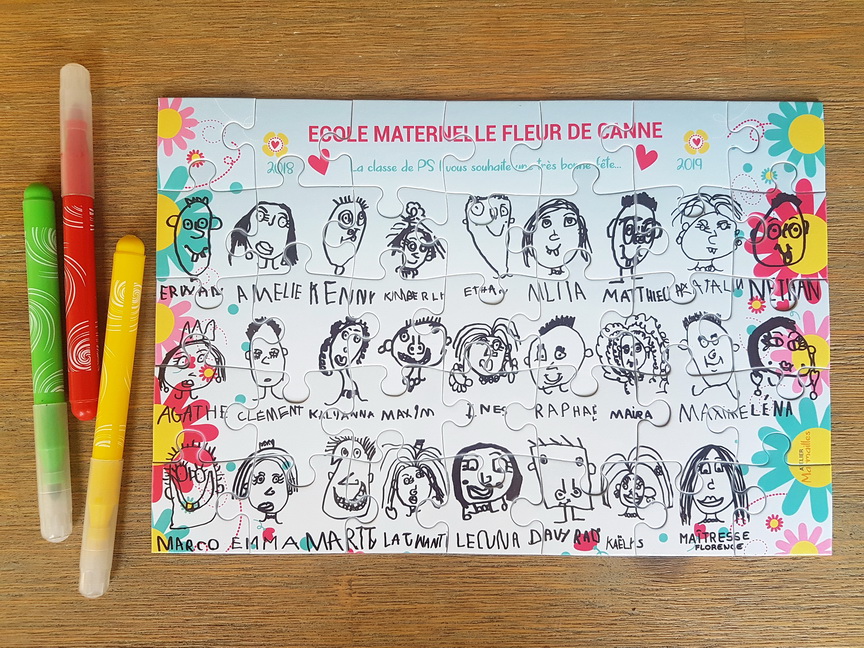 ECOLE MATERNELLE FLEUR DE CANNE
2018 La classe de PS 1 vous souhaite une très bonne fête... 2019
ERWAN AMELIE KENNY KIMBERLY ETHAN MATTHIEU NEIHAN
AGATHE CLEMENT KALYANNA MAXIM INES RAPHAE MAÏRA MAXIME LÉNA
MARCO EMMA LEOUNA DAVY KAËLYS MAÎTRESSE
FLORENCE
ATELIER
Marmailles